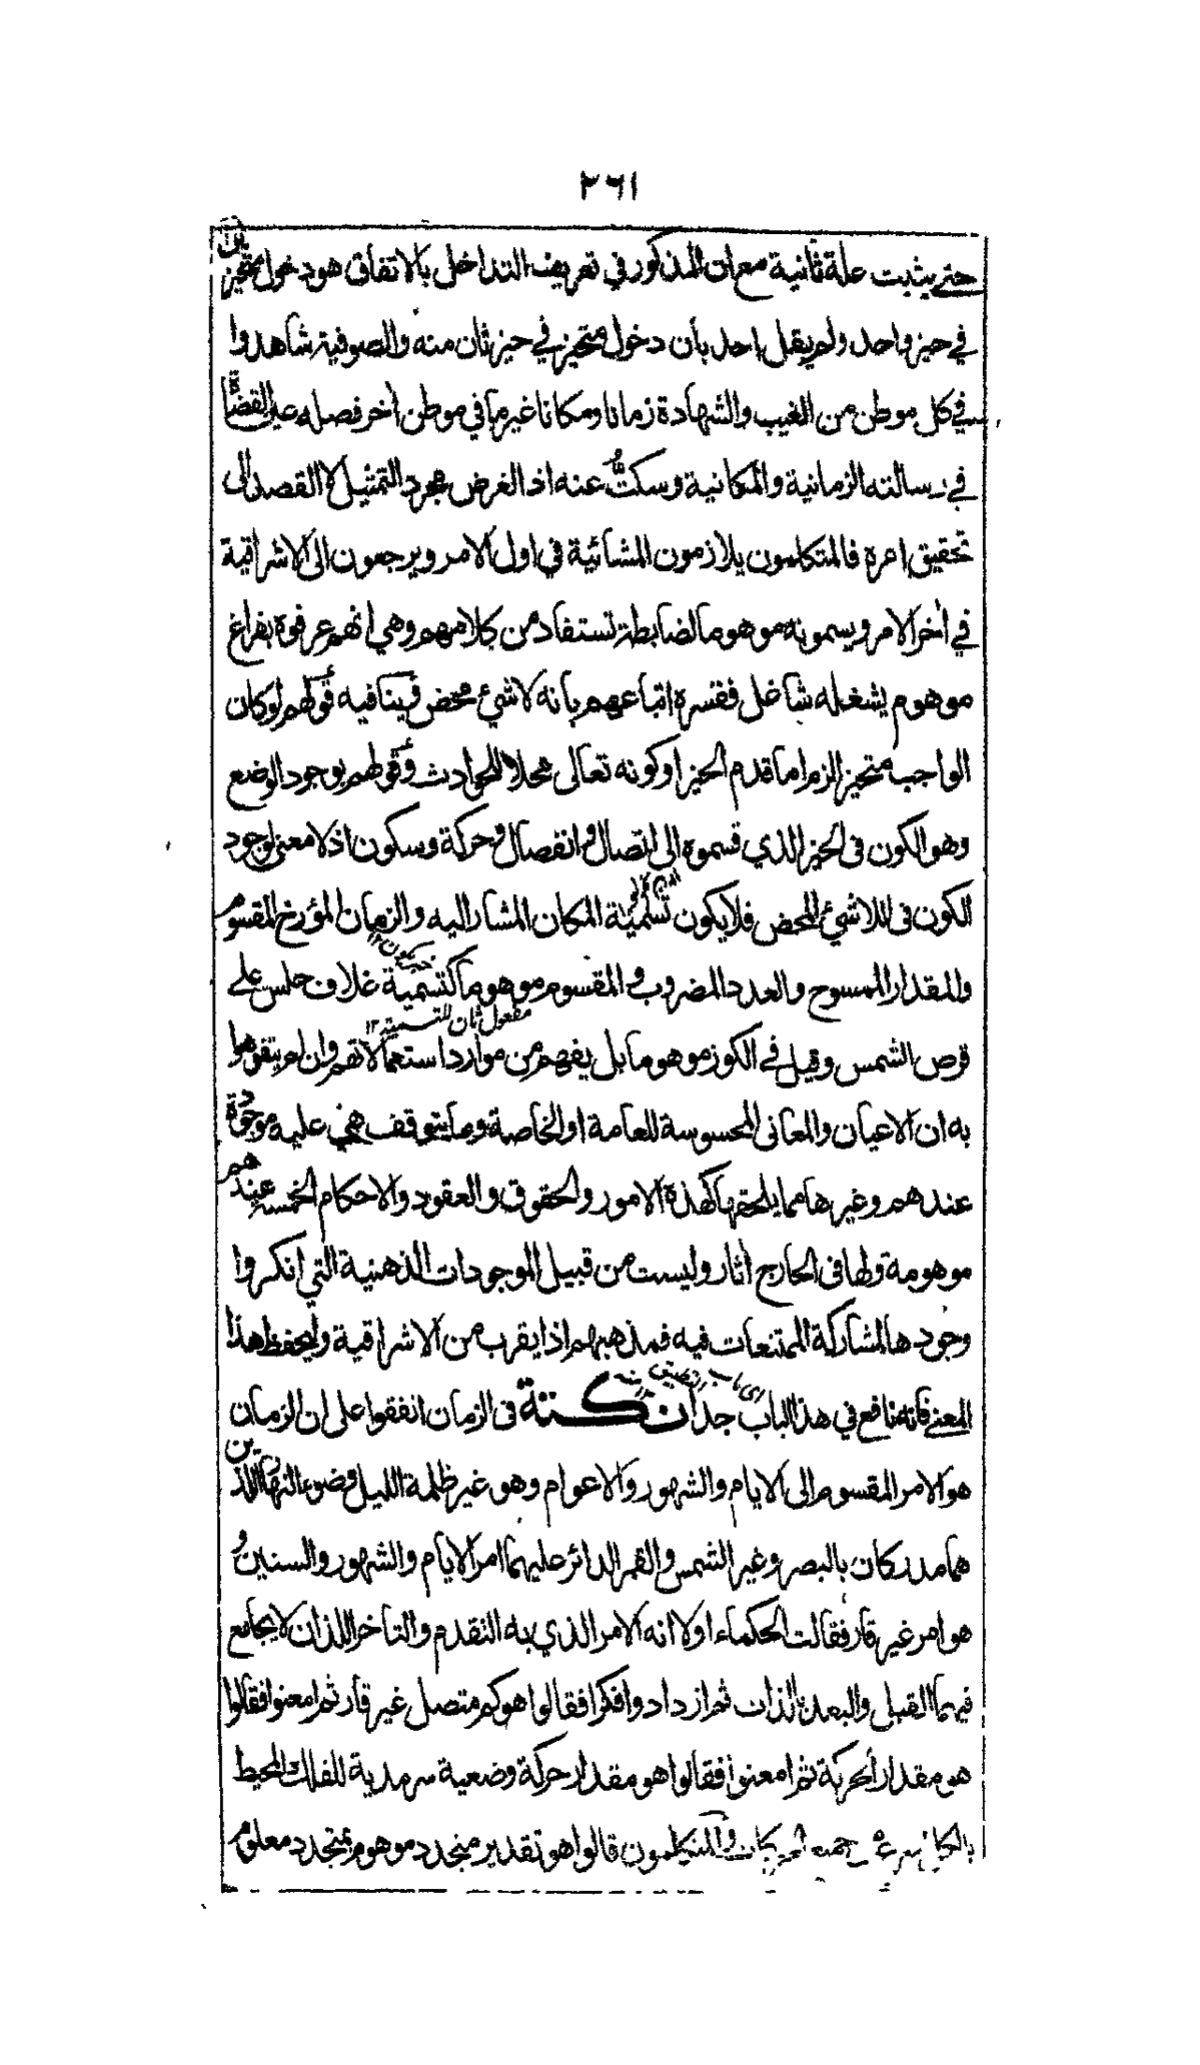 ٢٦١
حتى يثبت علة ثانية مع ان المذكور في تعريف التداخل بالاتفاق هو دخول متحيزين
في حيز واحد ولم يقل احد بأن دخول متحيز في حيز ثان منه والصوفية شاهدوا
في كل موطن من الغيب والشهادة زمانا ومكانا غير ما في موطن اخر فصله عين القضاة
في رسالته الزمانية والمكانية وسكتُّ عنه اذ الغرض مجرد التمثيل لا القصد الى
تحقيق امره فالمتكلمون يلازمون المشائية في اول الامر ويرجعون الى الاشراقية
في أخر الامر ويسمونه موهوما لضابطة تستفاد من كلامهم وهي انهم عرفوه بفراغ
موهوم يشغله شاغل ففسره اتباعهم بانه لا شيء محض فينافيه قولهم لو كان
الواجب متحيز الزم اما قدم الحيز او كونه تعالى محلا للحوادث وقولهم بوجود الوضع
وهو الكون في الحيز الذي قسموه الى اتصال وانفصال وحركة وسكون اذ لا معنى لوجود
الكون في اللاشيء المحض فلا يكون تسمية المكان المشار اليه والزمان المؤرخ المقسوم
والمقدار الممسوح والعدد المضروب والمقسوم موهوما كتسمية غلاف حلس على
مفعول ثان للتسمية ١٢
قرص الشمس وقيل في الكوز موهوما بل يفهم من موارد استعمالاتهم وان لم يتفوهوا
به ان الاعيان والمعاني المحسوسة للعامة او الخاصة وما يتوقف هي عليه موجودة
عندهم وغيرها مما يلحقها كهذه الامور والحقوق والعقود والاحكام الخمسة عندهم
موهومة ولها في الخارج أثار وليست من قبيل الموجودات الذهنية التي انكروا
وجودها لمشاركة الممتنعات فيه فمذهبهم اذا يقرب من الاشراقية وليحفظ هذا
المعنى فانه نافع في هذا الباب جدا نكتة في الزمان اتفقوا على ان الزمان
هو الامر المقسوم الى الايام والشهور والاعوام وهو غير ظلمة الليل وضوء النهار اللذين
هما مدركان بالبصر وغير الشمس والقمر الدائر عليهما امر الايام والشهور والسنين و
هو امر غير قار فقالت الحكماء اولا انه الامر الذي به التقدم والتاخر اللذان لا يجامع
فيهما القبل والبعد بالذات ثم ازدادوا فكرا فقالوا هو كم متصل غير قار ثم امعنوا فقالوا
هو مقدار الحركة ثم امعنوا فقالوا هو مقدار حركة وضعية سرمدية للفلك المحيط
جميع الحركات والمتكلمون قالوا هو تقدير متجدد موهوم بمتجدد معلوم